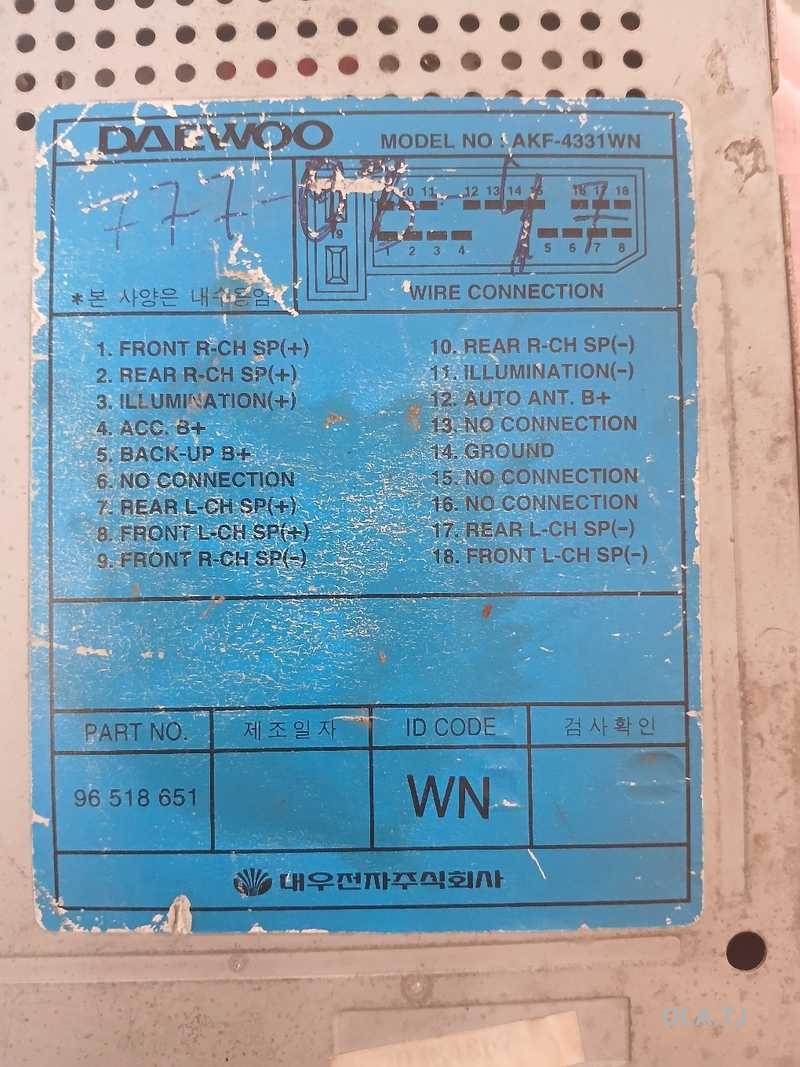 DAEWOO
MODEL NO : AKF-4331WN
777-03-47
10 11 12 13 14 15 16 17 18
9
1 2 3 4 5 6 7 8
*본 사양은 내수용임
WIRE CONNECTION
1. FRONT R-CH SP(+)
2. REAR R-CH SP(+)
3. ILLUMINATION(+)
4. ACC. B+
5. BACK-UP B+
6. NO CONNECTION
7. REAR L-CH SP(+)
8. FRONT L-CH SP(+)
9. FRONT R-CH SP(-)
10. REAR R-CH SP(-)
11. ILLUMINATION(-)
12. AUTO ANT. B+
13. NO CONNECTION
14. GROUND
15. NO CONNECTION
16. NO CONNECTION
17. REAR L-CH SP(-)
18. FRONT L-CH SP(-)
PART NO. 제조일자 ID CODE 검사확인
96 518 651 WN
대우전자주식회사
OLA.TJ